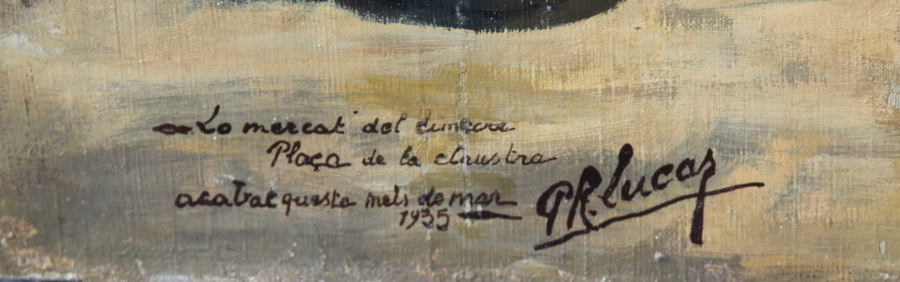 Lo mercat del dimecre
Plaça de la claustra
acabat questa mes de mar
1935
PR. Lucas